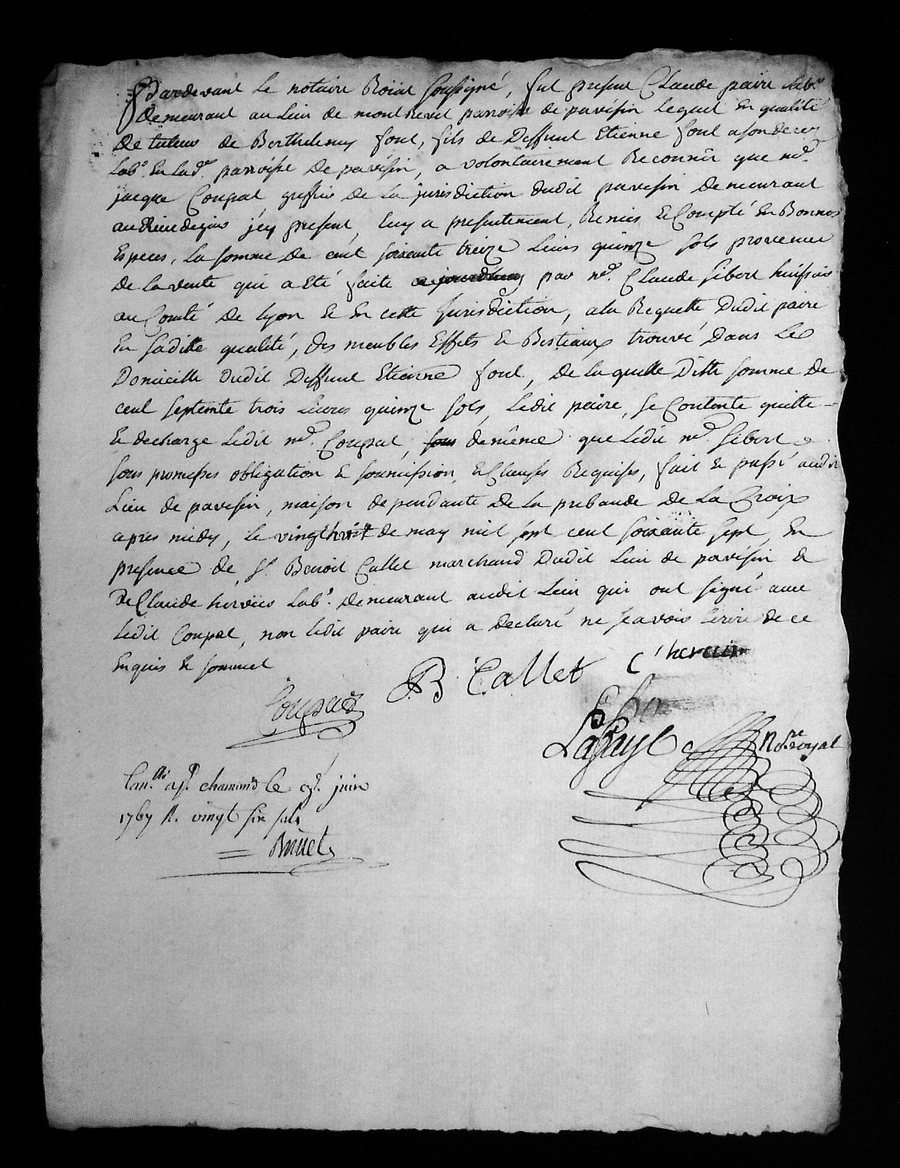 Pardevant le notaire Roial soussigné, fut present Claude paire lab.r
demeurant au lieu de monthevil parroisse de pavesin lequel en qualité
de tuteur de Berthelemy font, fils de deffunt Etienne font
lab.r en lad.e parroisse de pavesin, a volontairement Reconnû que m.e
jacque Coupat greffier de la jurisdiction dudit pavesin demeurant
jcy present, luy a presentement, Remis et Compté en Bonnes
Especes, la somme de cent soixante treize livres quinze sols provenue
de la vente qui a eté faite par m.e Claude Sibert huissier
au Comté de Lyon et en cette jurisdiction, a la Requette dudit paire
en sa ditte qualité, des meubles Effets et Bestiaux trouvé dans le
Domicille dudit Deffunt Etienne font, de la quelle ditte somme de
cent septente trois livres quinze sols, ledit paire, se Contente quitte
et decharge ledit m.e Coupat, de même que ledit m.e Sibert
sous promesses obligation et soumission, et clauses Requises, fait et passé audit
Lieu de pavesin, maison dependante de la prebande de La Croix
apres midy, le vingt huit de may mil sept cent soixante sept, En
presence de s.r Benoit Callet marchand dudit Lieu de pavesin et
de Claude hervier lab.r demeurant audit Lieu qui ont signé avec
Ledit Coupat, non ledit paire qui a declaré ne sçavoir Ecrire de ce
enquis et sommé
Coupat B Callet C hervier
N.re royal
Con.llé a s.t chamond le juin
1767 R. vingt six sols